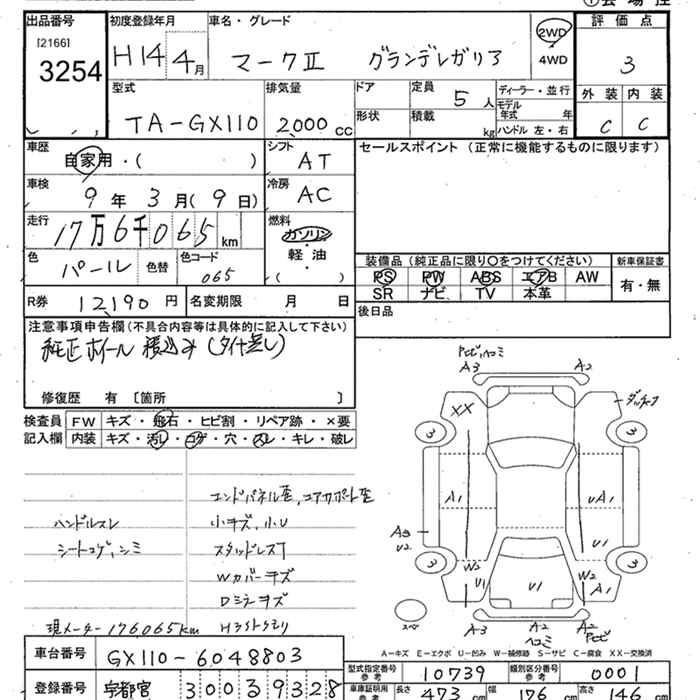 出品番号
[2166]
3254
初度登録年月
H14年4月
車名・グレード
マークII グランデレガリア
2WD
4WD
評価点
3
外装 内装
C C
型式
TA-GX110
排気量
2,000 cc
ドア
形状
定員
5人
積載
kg
ディーラー・並行
モデル年式 年
ハンドル 左・右
車歴
自家用・( )
シフト
AT
セールスポイント (正常に機能するものに限ります)
車検
9年3月(9日)
冷房
AC
走行
17万6千065 km
燃料
ガソリン
軽油
( )
色
パール
色替
色コード
065
装備品 (純正品に限り○をつけてください)
新車保証書
PS PW ABS エアB AW
SR ナビ TV 本革
有・無
R券
12,190円
名変期限 月 日
後日品
注意事項申告欄(不具合内容等は具体的に記入して下さい)
純正ホイール積込み(タイヤ無し)
修復歴 有 [箇所 ]
検査員記入欄
FW キズ・飛石・ヒビ割・リペア跡・×要
内装 キズ・汚レ・コゲ・穴・スレ・キレ・破レ
エンドパネル歪、コアサポート歪
ハンドルスレ
小キズ、小U
シートコゲ、シミ
スタッドレスT
Wカバーキズ
Dミラーキズ
現メーター176065km
A3 A2
XX
3 3
A1 UA1
A3
U2
U1
3 3
W2 W2
U1 U1 A1
スペア
A3 A2 A2
ヘコミ
A-キズ E-エクボ U-凹み W-補修跡 S-サビ C-腐食 XX-交換済
車台番号
GX110-6048803
型式指定番号 参考
10739
類別区分番号 参考
0001
登録番号
宇都宮 300 る 9328
車庫証明用 参考
長さ 473 cm
幅 176 cm
高さ 146 cm